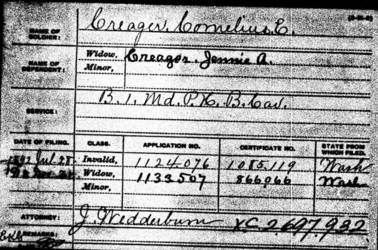 (3-014)
NAME OF SOLDIER: Creager, Cornelius E.
NAME OF DEPENDENT: Widow, Creager, Jennie A.
Minor,
SERVICE: B. 1, Md. P. H. B. Cav.
DATE OF FILING. CLASS. APPLICATION NO. CERTIFICATE NO. STATE FROM WHICH FILED.
1892 Jul 28 Invalid, 1124076 1085119 Wash
Widow, 1133507 866066 Wash
Minor,
ATTORNEY: J. Wedderburn XC 2697932
REMARKS: